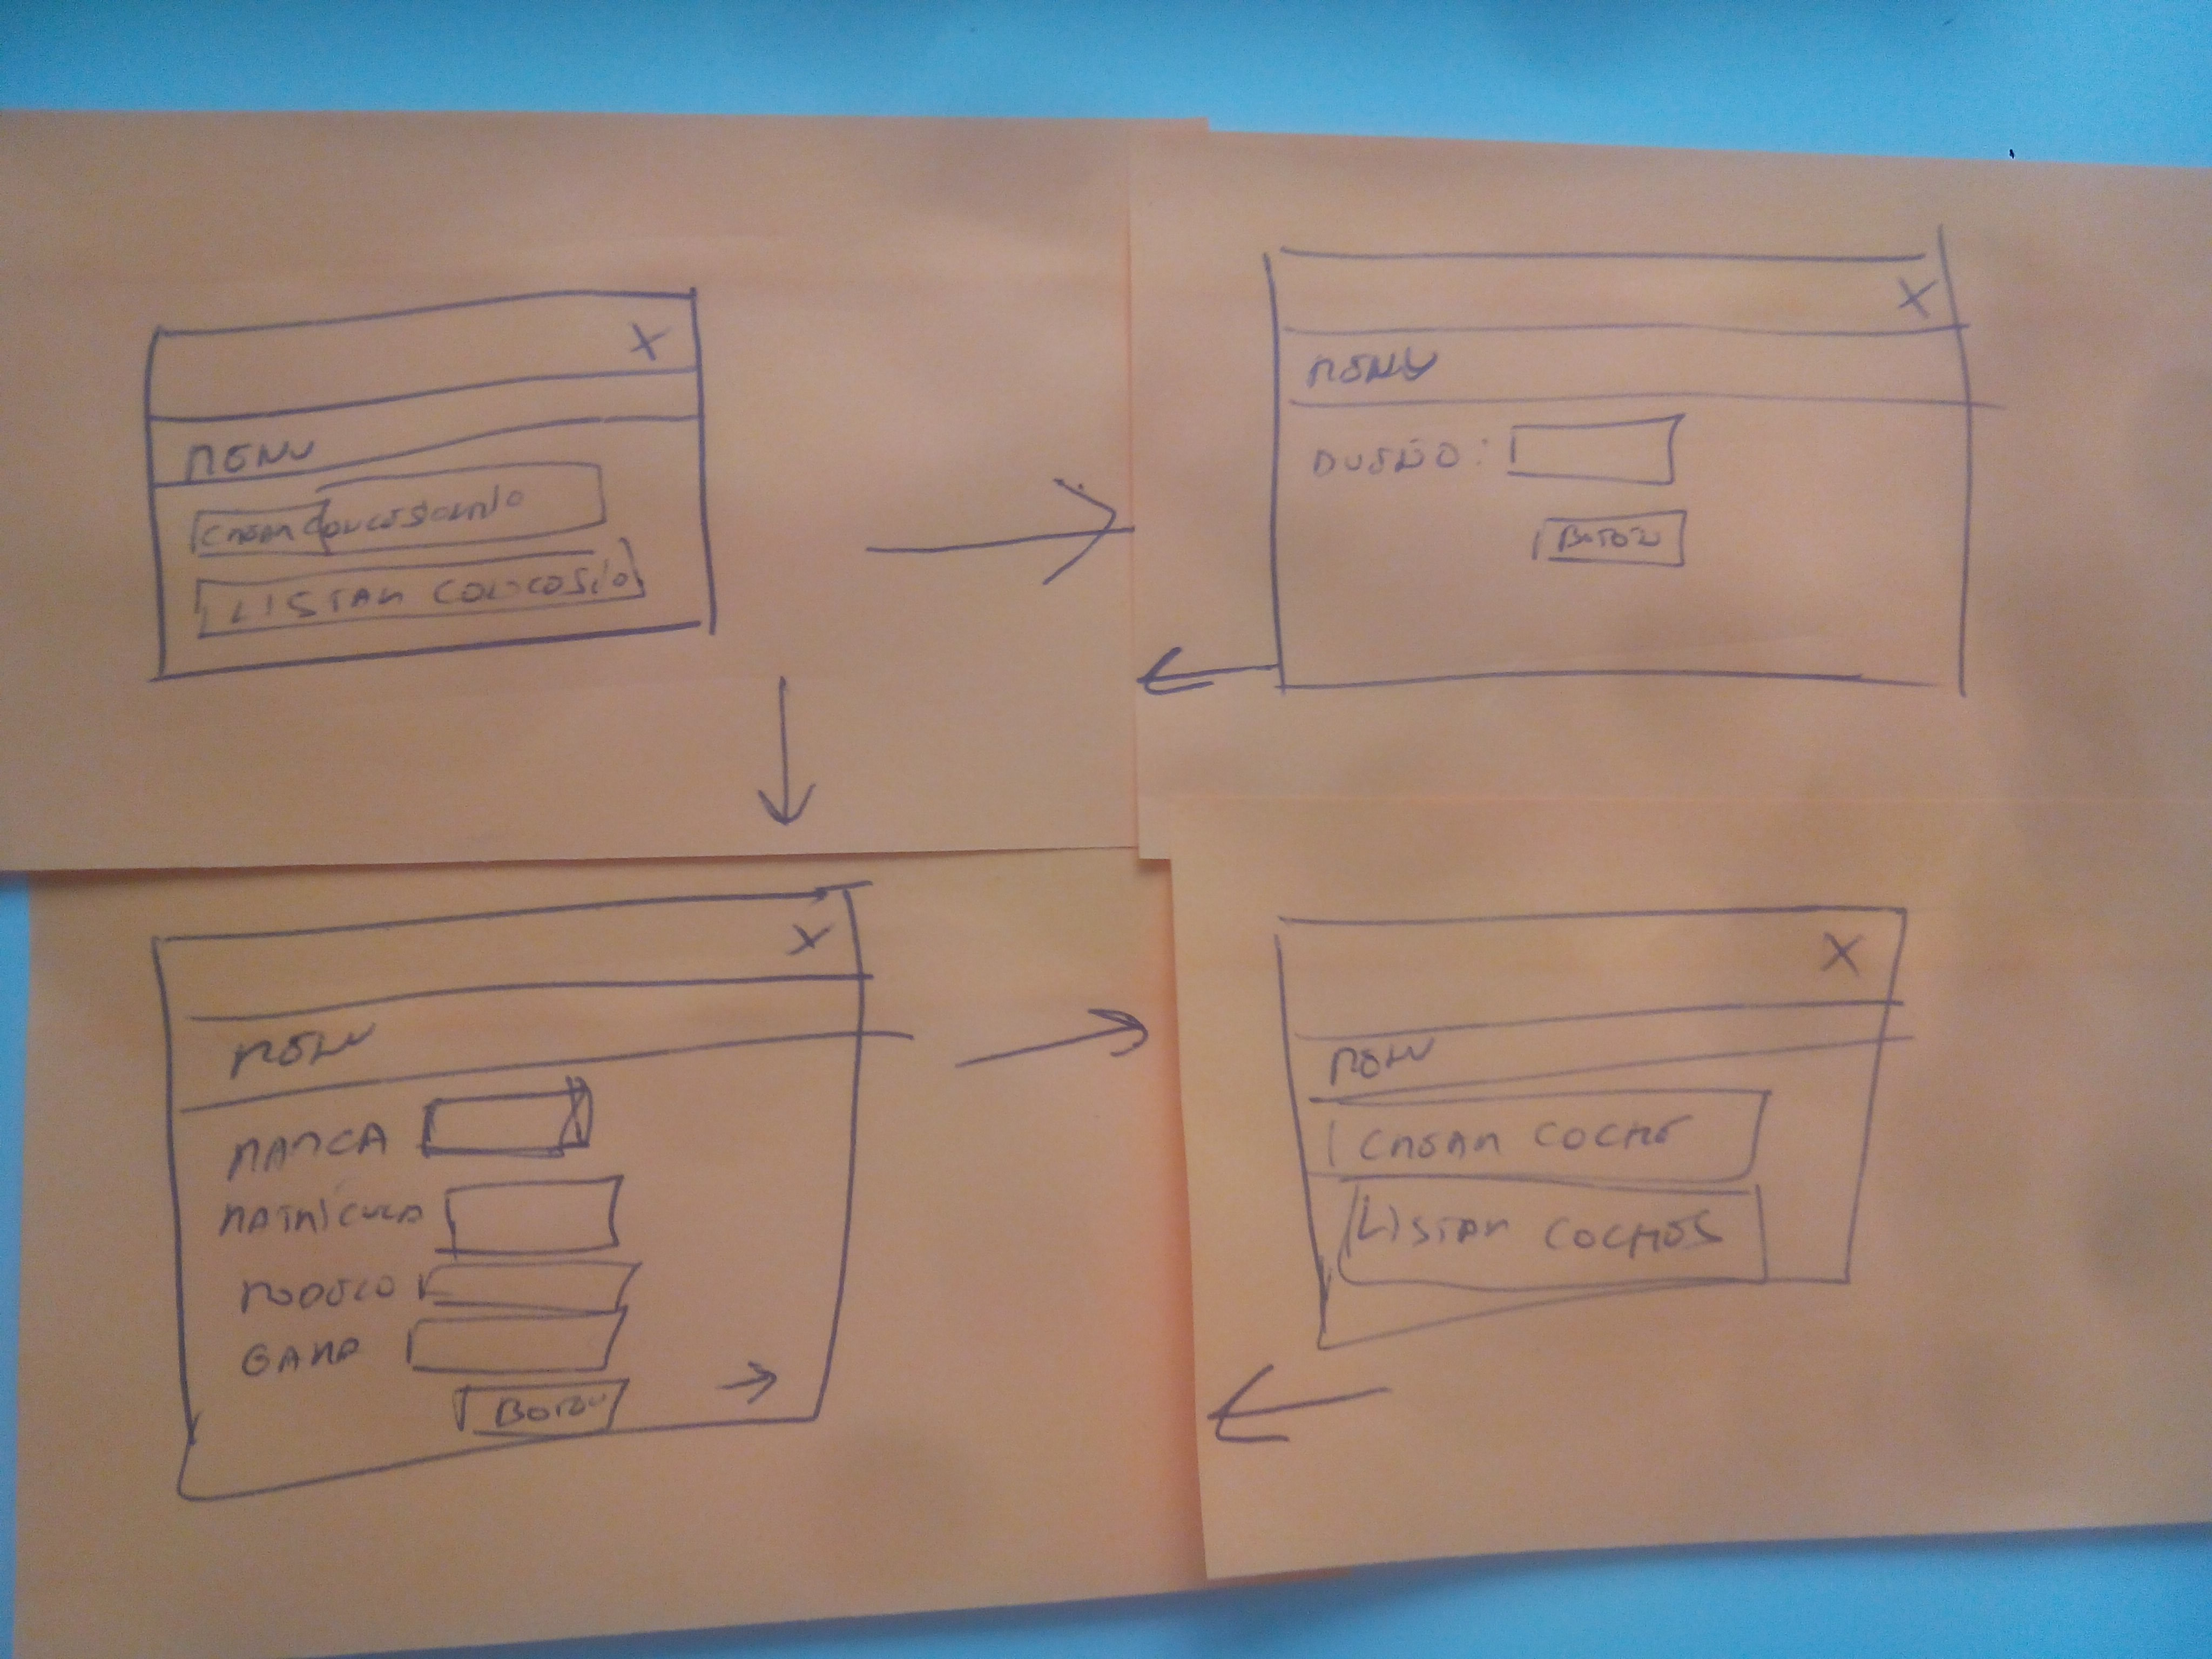 X
MENU
CREAR CONCESIONARIO
LISTAR CONCESIO
X
MENU
DUEÑO:
BOTON
X
MENU
MARCA
MATRÍCULA
MODELO
GAMA
BOTON
X
MENU
CREAR COCHE
LISTAR COCHES